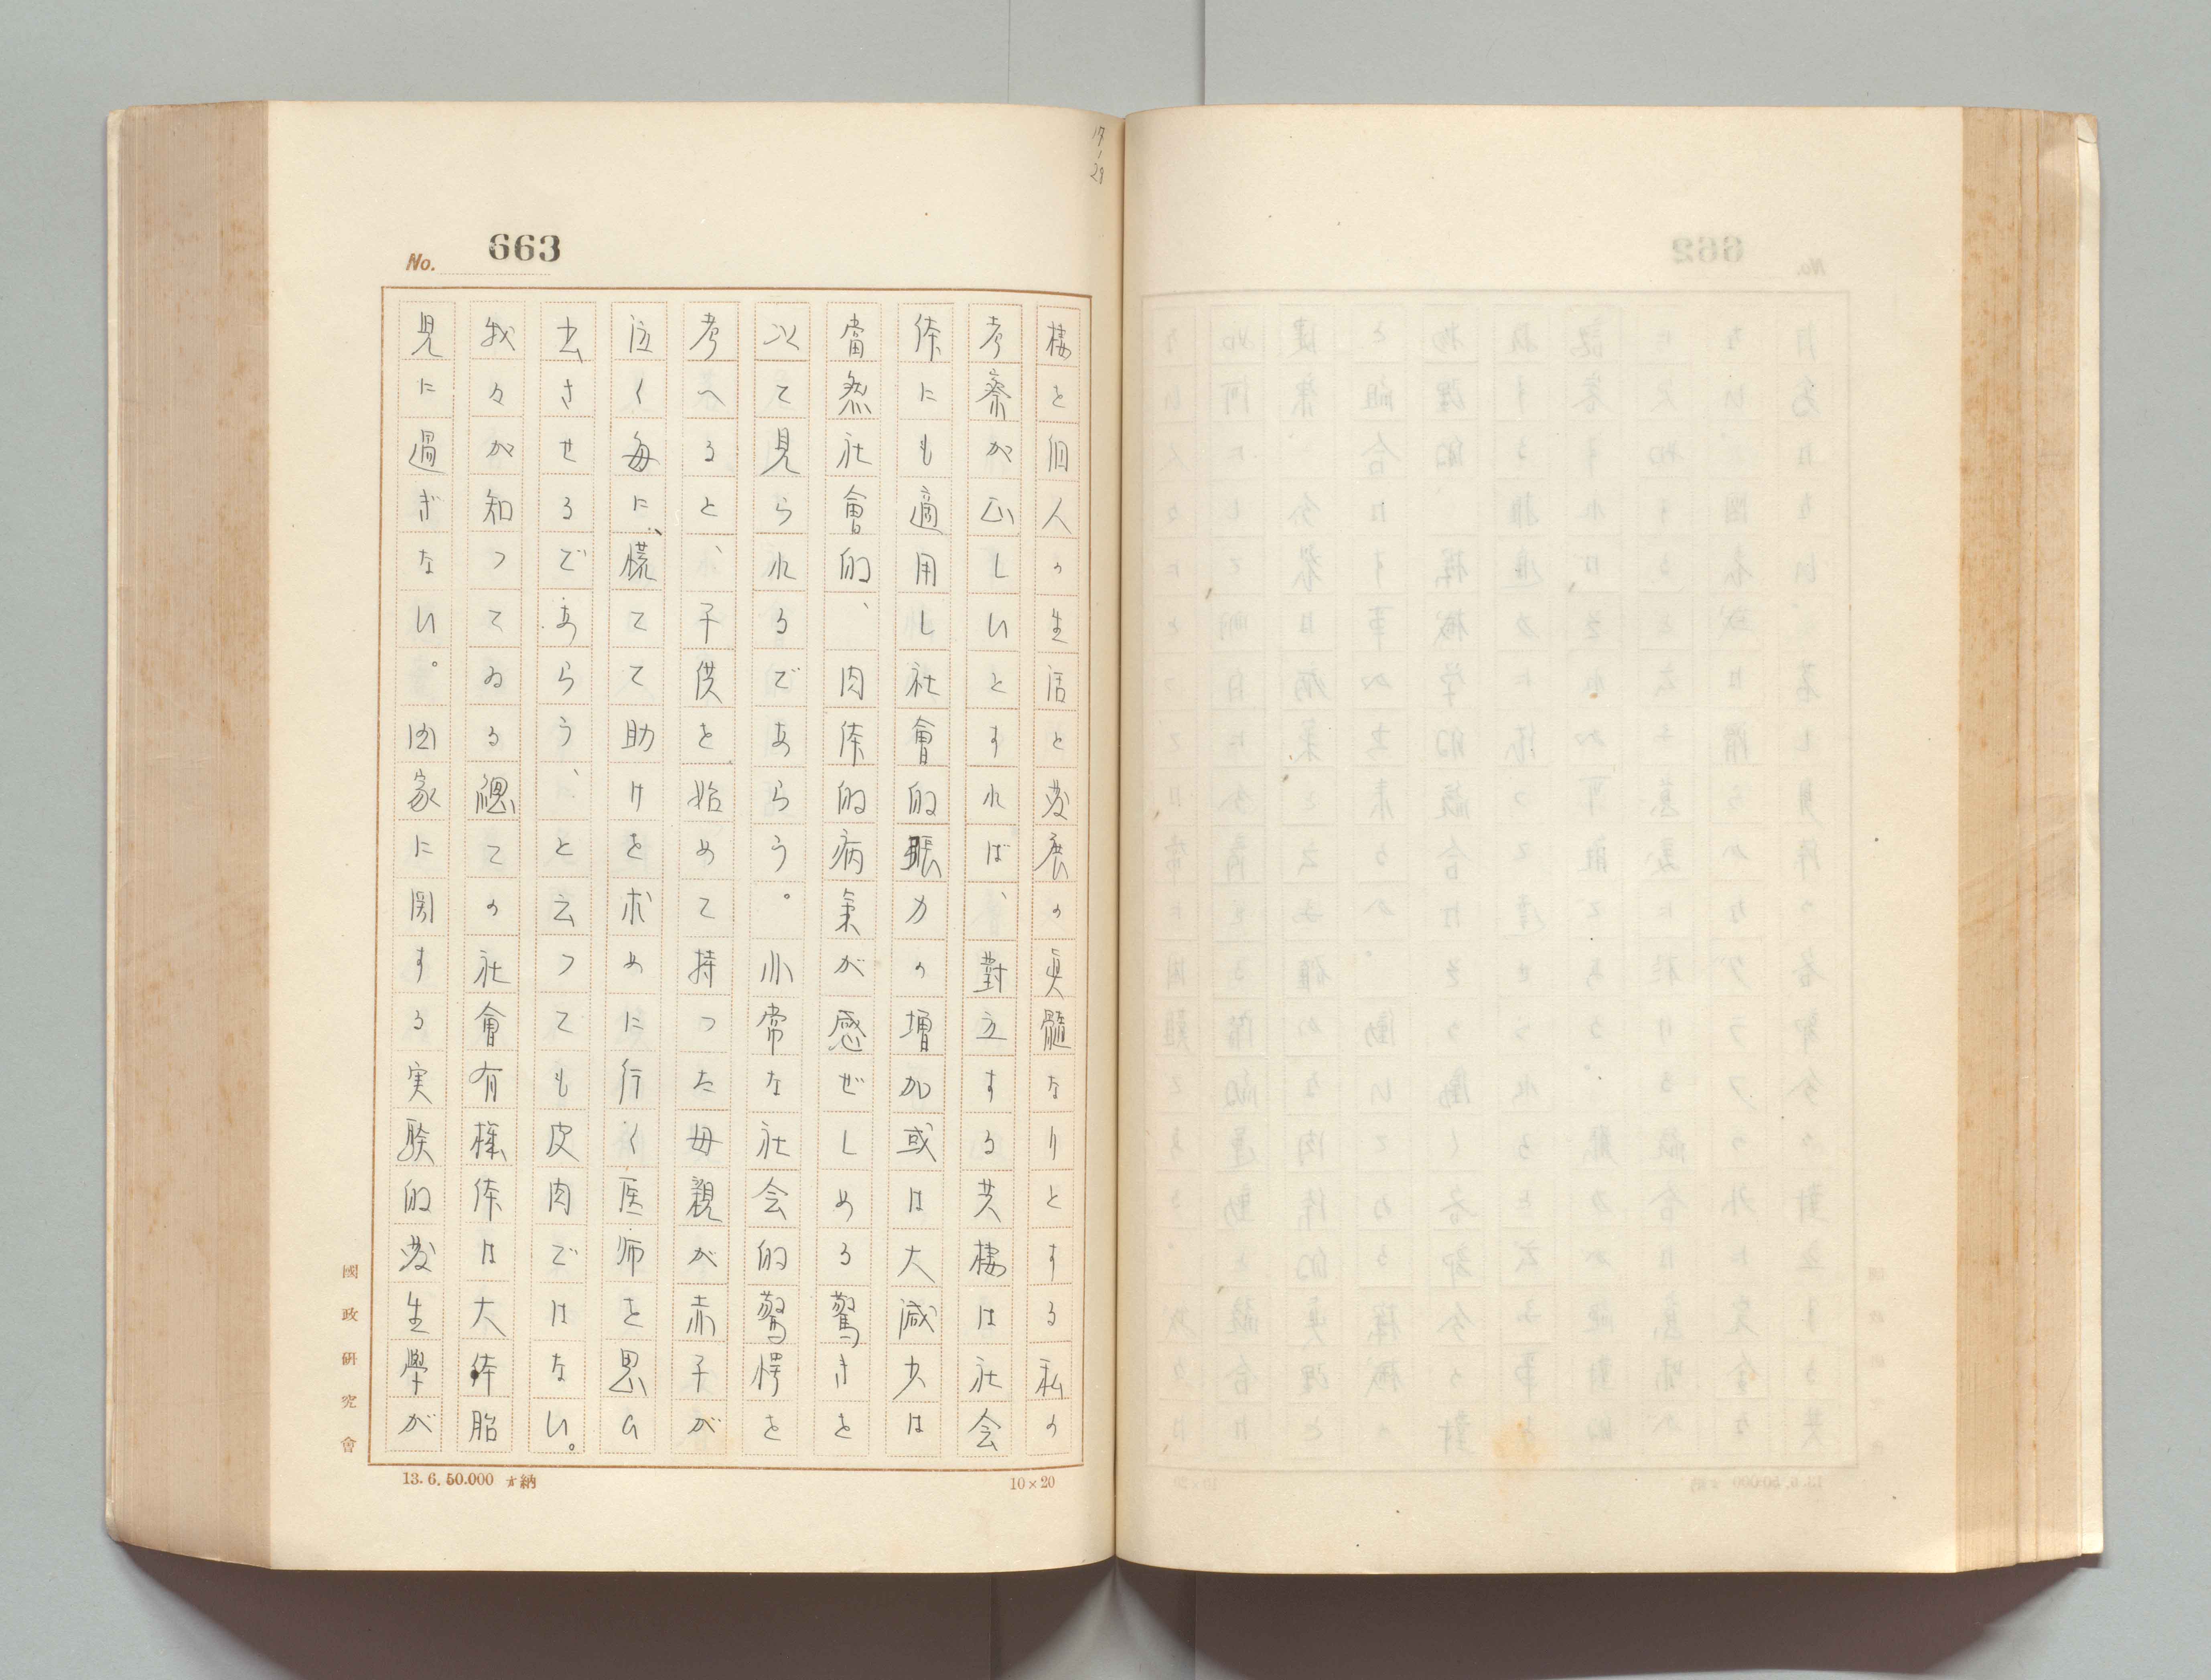 17/29
No. 663
棲と個人の生活と発展の真髄なりとする私の
考察が正しいとすれば、對立する共棲は社会
体にも適用し社會的張力の増加或は大減少は
當然社會的、肉体的病気が感ぜしめる驚きを
以て見られるであらう。小常な社会的驚愕を
考へると、子供を始めて持った母親が赤子が
泣く毎に、慌てて助けを求めに行く医师を思ひ
出させるであらう、と云つても皮肉ではない。
我々が知つてゐる總ての社會有機体は大体胎
児に過ぎない。国家に関する実験的発生學が
國政研究會
13.6.50.000 オ納
10×20